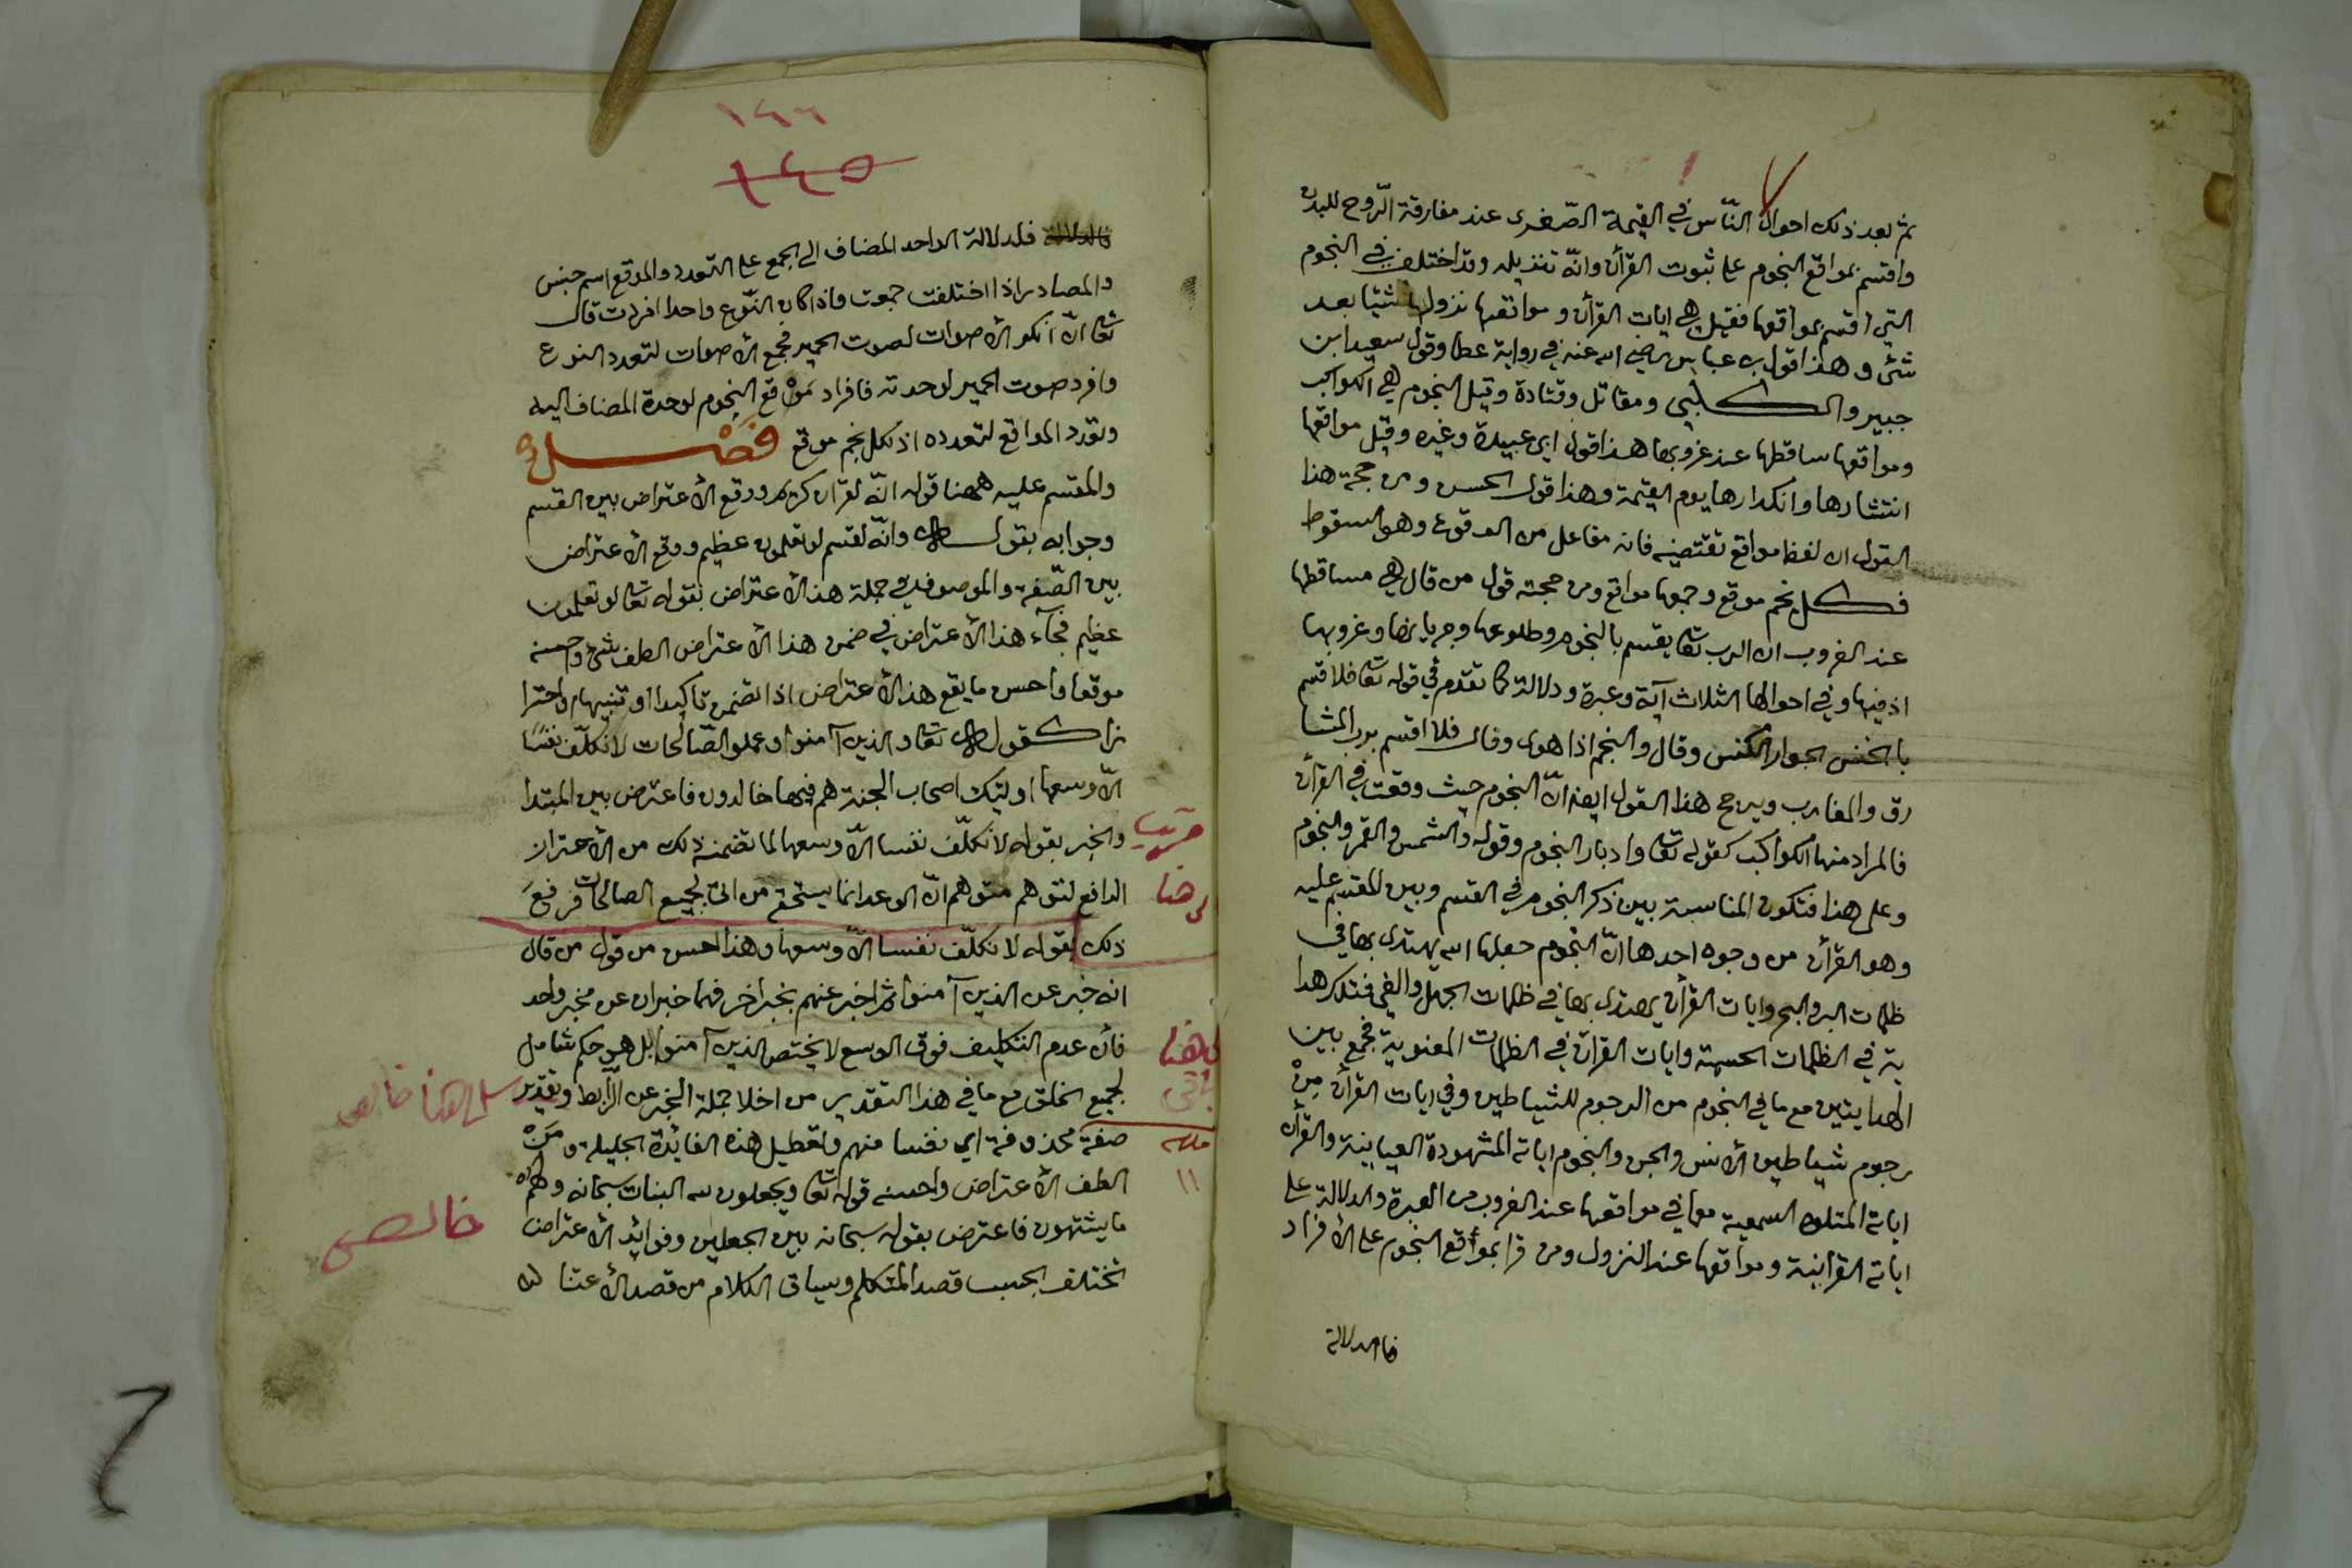 ثم بعد ذلك احوال النّاس في القيمة الصّغرى عند مفارقة الرّوح للبدن
واقسم بمواقع النجوم على ثبوت القرآن وانّه تنزيله وقد اختلف في النجوم
التي اقسم بمواقعها فقيل هي ايات القرآن ومواقعها نزولها شيئا بعد
شئ وهذا قول بن عباس رضي الله عنه في رواية عطا وقول سعيد ابن
جبير والكلبي ومقاتل وقتادة وقيل النجوم هي الكواكب
ومواقعها مساقطها عند غروبها هذا قول ابي عبيدة وغيره وقيل مواقعها
انتشارها وانكدارها يوم القيمة وهذا قول الحسن ومن حجة هذا
القول ان لفظ مواقع تقتضيه فانه مفاعل من الوقوع وهو السقوط
فكل نجم موقع وجمعها مواقع ومن حجته قول من قال هي مساقطها
عند الغروب ان الرب تعا يقسم بالنجوم وطلوعها وجريانها وغروبها
اذ فيها وفي احوالها الثلاث آية وعبرة ودلالة كما تقدم في قوله تعا فلا اقسم
بالخنس الجوار الكنس وقال والنجم اذا هوى وقال فلا اقسم برب المشا
رق والمغارب ويرجح هذا القول ايضا انّ النجوم حيث وقعت في القرآن
فالمراد منها الكواكب كقوله تعا وادبار النجوم وقوله والشمس والقمر والنجوم
وعلى هذا فتكون المناسبة بين ذكر النجوم في القسم وبين المقسم عليه
وهو القرآن من وجوه احدها انّ النجوم جعلها الله يهتدى بها في
ظلمات البر والبحر وايات القرآن يهتدى بها في ظلمات الجهل والغي فتلك هدا
ية في الظلمات الحسية وايات القرآن في الظلمات المعنوية فجمع بين
الهدايتين مع ما في النجوم من الرجوم للشياطين وفي ايات القرآن مِنْ
رجوم شياطين الانس والجن والنجوم اياته المشهودة العيانية والقرآن
اياته المتلوة السمعية مع ما في مواقعها عند الغروب من العبرة والدلالة على
اياته القرانية ومواقعها عند النزول ومن قرا بموقع النجوم على الافراد
فالدلالة
١٤٦
١٤٥
فالدلالة فلدلالة الواحد المضاف الى الجمع على التعدد والموقع اسم جنس
والمصادر اذا اختلفت جمعت واذا كان النّوع واحدا افردت قال
تعا انّ انكر الأصوات لصوت الحمير فجمع الأصوات لتعدد النوع
وافرد صوت الحمير لوحدته فافراد مَوْقع النجوم لوحدة المضاف اليه
وتعدد المواقع لتعدده اذ لكل نجم موقع فَصْل
والمقسم عليه ههنا قوله انّه لقرآن كريم ووقع الأعتراض بين القسم
وجوابه بقوله وانّه لقسم لو تعلمون عظيم ووقع الأعتراض
بين الصّفة والموصوف في جملة هذا الأعتراض بقوله تعا لو تعلمون
عظيم فجآء هذا الأعتراض في ضمن هذا الأعتراض الطف شئ واحسنه
موقعا واحسن ما يقع هذا الأعتراض اذا تضمن تاكيدا او تنبيها واحترا
زا كقوله تعا والذين آمنوا وعملو الصّالحات لا نكلّف نفسًا
الّا وسعها اوليك اصحاب الجنة هم فيها خالدون فاعترض بين المبتدا
والخبر بقوله لا نكلّف نفسا الّا وسعها لما تضمنه ذلك من الأحتراز
الدافع لتوهم متوهم انّ الوعد انما يستحقه من اتى بجميع الصالحات فرفع
ذلك بقوله لا نكلّف نفسا الّا وسعها وهذا احسن من قول من قال
انه خبر عن الذين آمنوا ثم اخبر عنهم بخبر اخر فهما خبران عن مخبر واحد
فان عدم التكليف فوق الوسع لا يختص الذين آمنوا بل هو حكم شامل
لجميع الخلق مع ما في هذا التقدير من اخلا جملة الخبر عن الرّابط وتقدير
صفة محذوفة اي نفسا منهم وتعطيل هذه الفايدة الجليلة ومَنْ
الطف الأعتراض واحسنه قوله تعا ويجعلون لله البنات سبحانه ولهم
ما يشتهون فاعترض بقوله سبحانه بين الجعلين وفوايد الأعتراض
تختلف بحسب قصد المتكلم وسياق الكلام من قصد الأعتنا
خالص